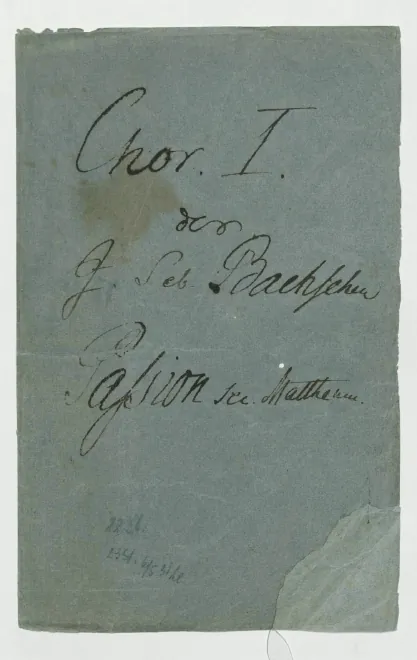 Chor. I.
der
J. Seb Bachschen
Passion sec. Matthaeum.
22 St.
23 St.